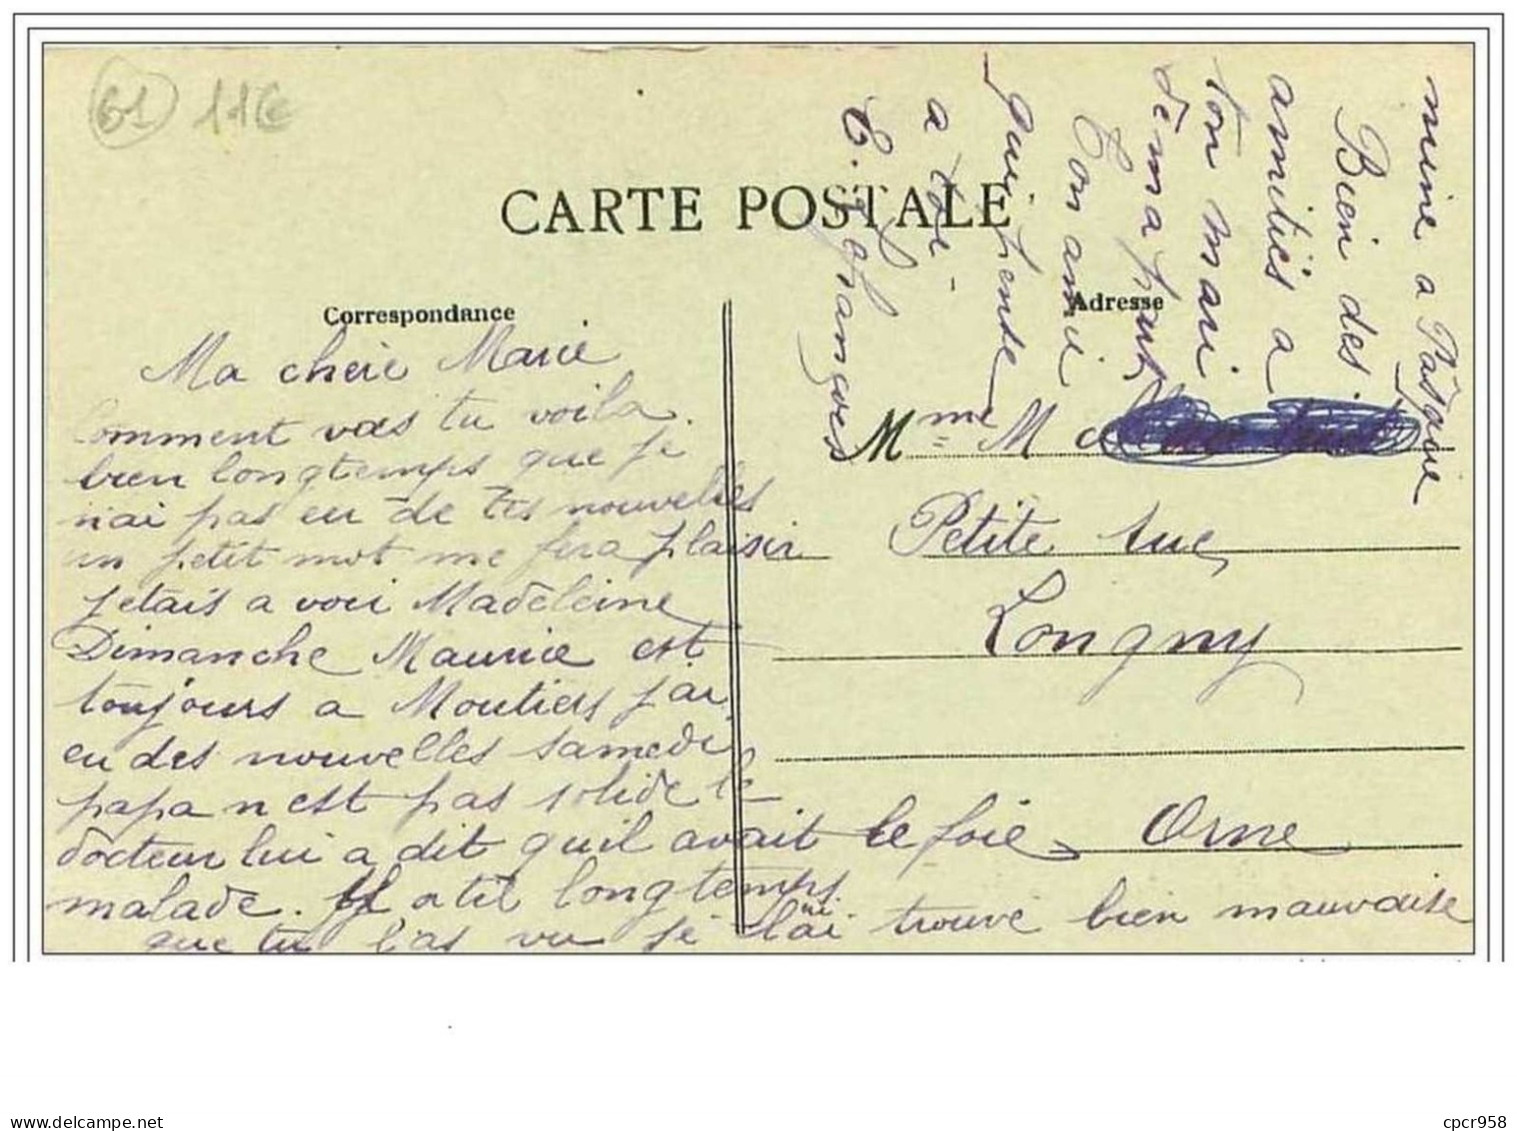 61 11€
CARTE POSTALE
Correspondance
Adresse
Ma cheie Marie
Comment vas tu voila
bien longtemps que je
n'ai pas eu de tes nouvelles
un petit mot me fera plaisir
jetais a voir Madeleine
Dimanche Maurice est
toujours a Moutiers j'ai
eu des nouvelles samedi
papa n est pas solide le
docteur lui a dit quil avait le foie
malade. Il a til longtemps
que tu l'as vu je lai trouvé bien mauvaise
mine a Pasque
Bien des
amitiés a
ton mari
de ma part
Ton amie
qui pense
a toi
C. Lefrançois
Mme M
Petite rue
Longny
Orne
cpcr958